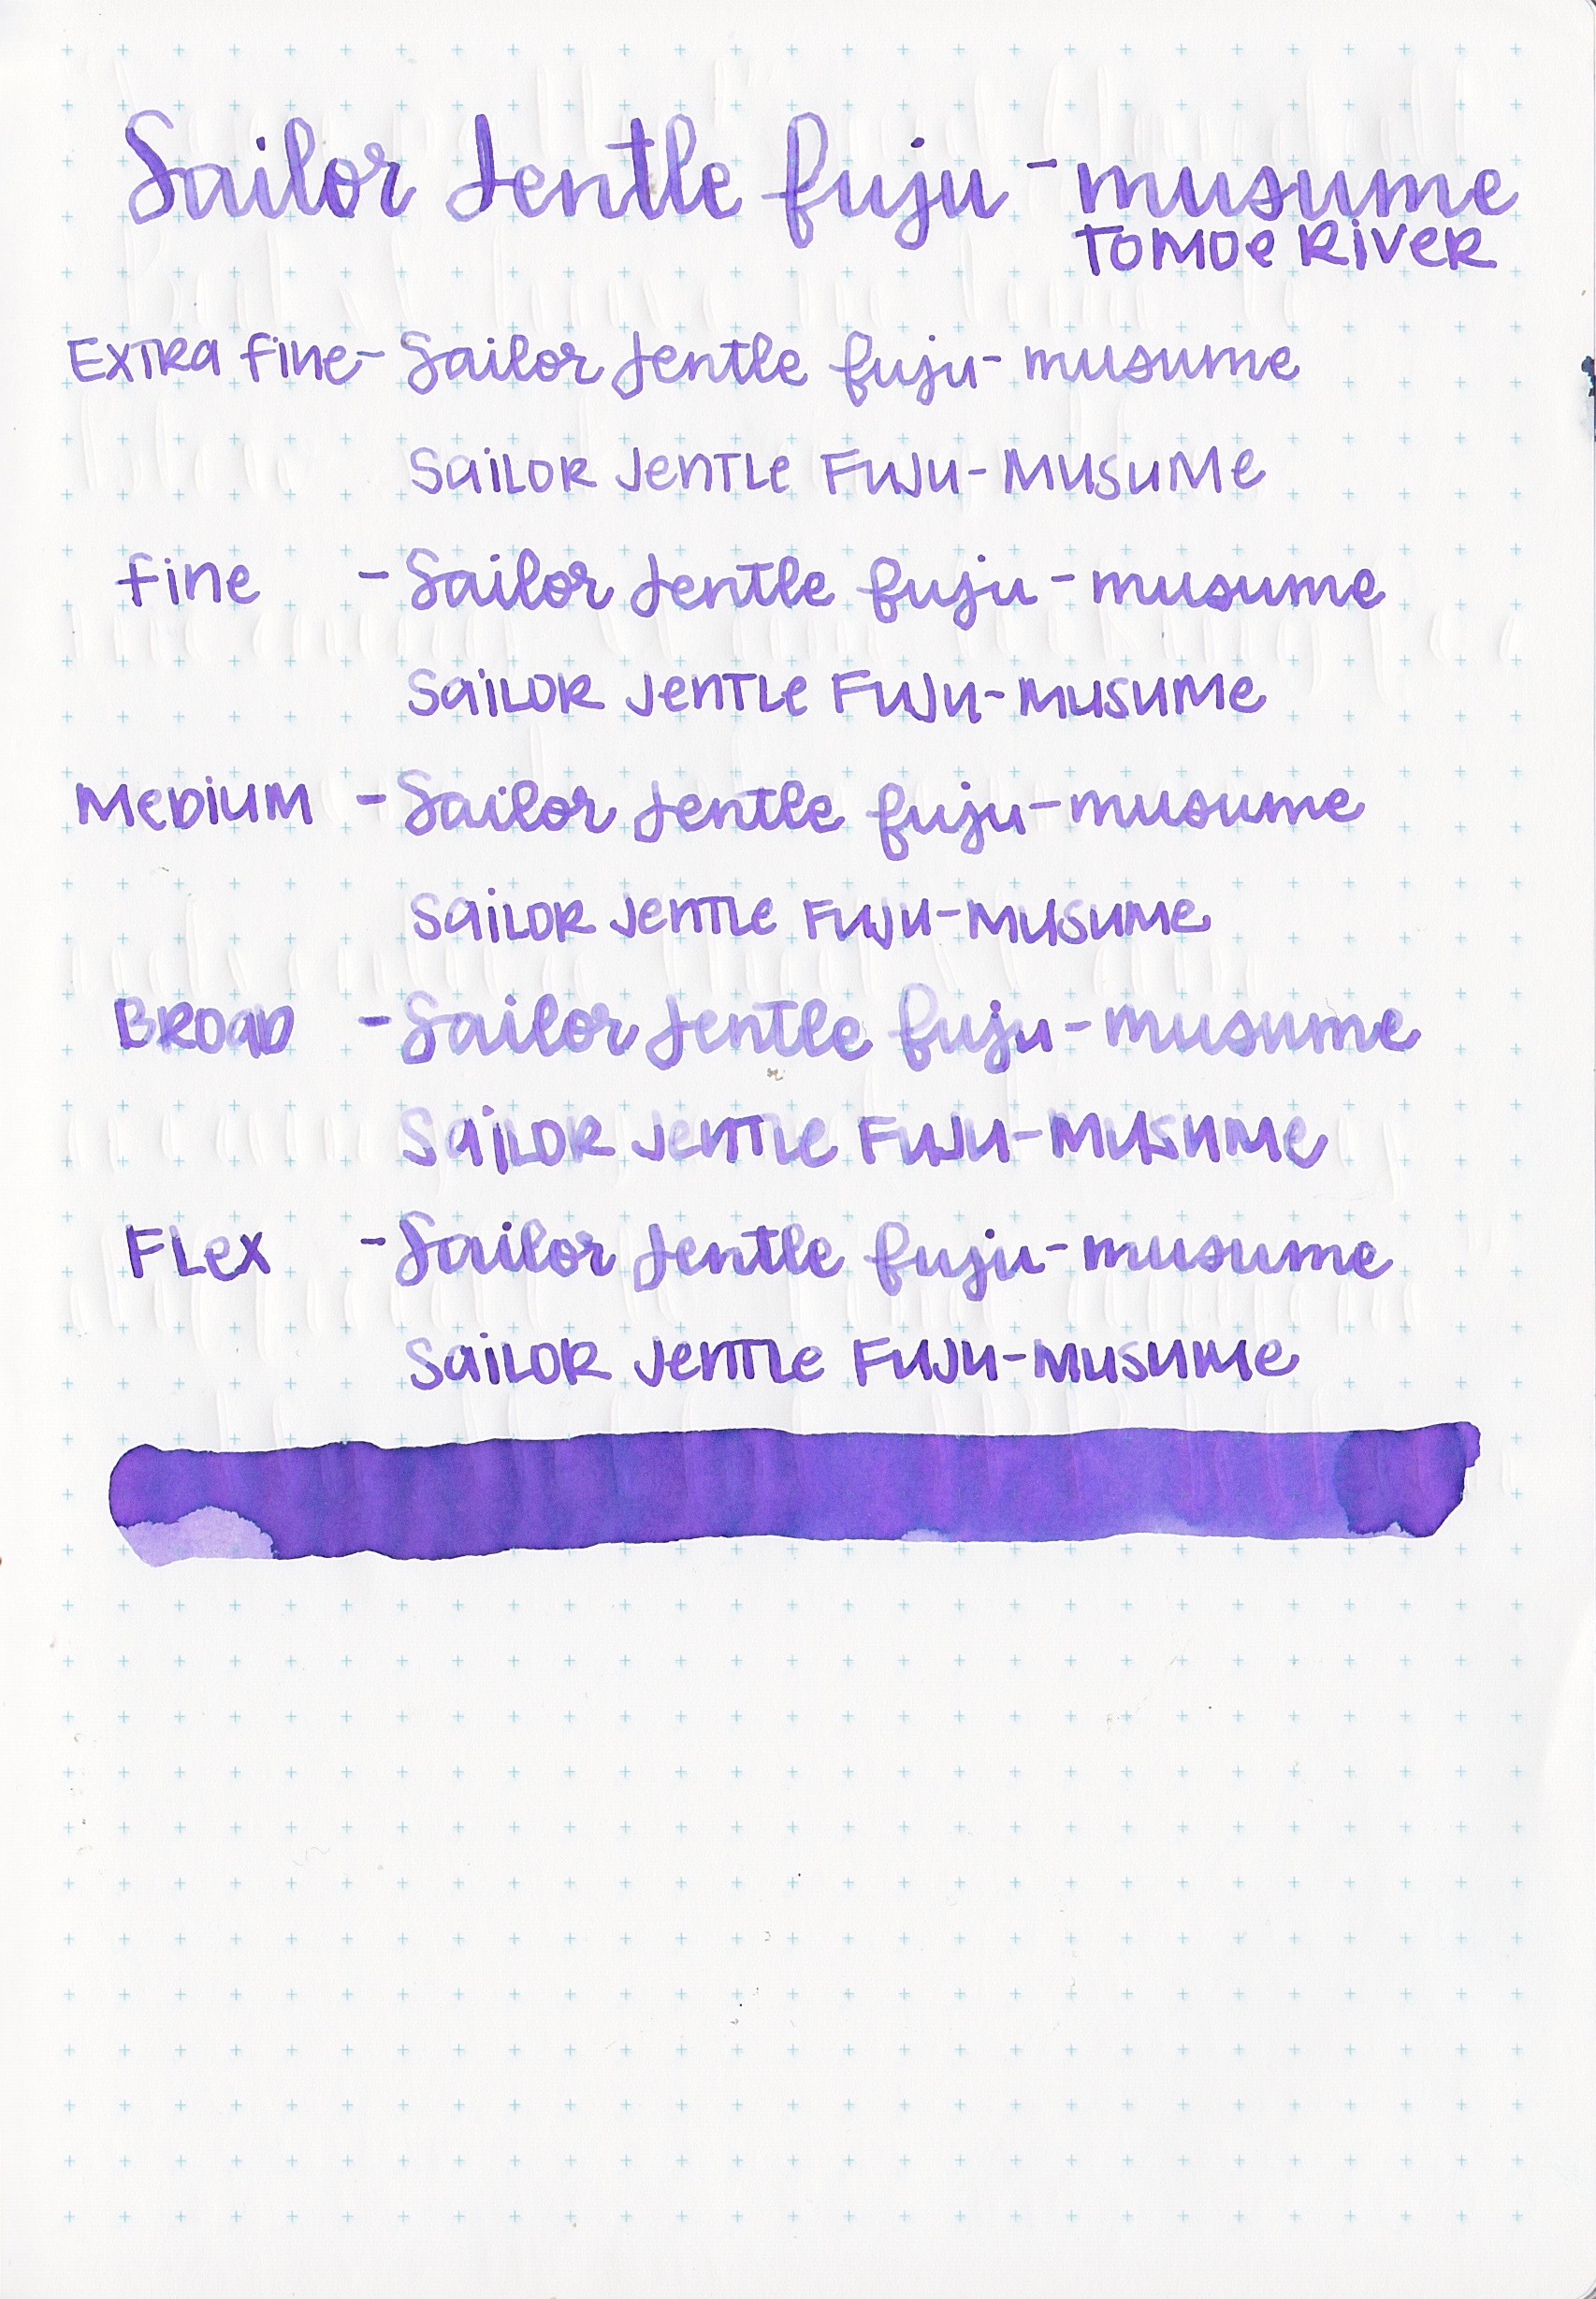 Sailor Jentle fuju-musume
TOMOe RiveR
ExTRa fine- Sailor Jentle fuju-musume
SaiLOR JenTLe FuJu-MUSuMe
fine - Sailor Jentle fuju-musume
SaiLOR JenTLe FuJu-MUSuMe
MeDiUM - Sailor Jentle fuju-musume
SaiLOR JenTLe FuJu-MUSuMe
BROaD - Sailor Jentle fuju-musume
SaiLOR JenTLe FuJu-MUSuMe
FLex - Sailor Jentle fuju-musume
SaiLOR JenTLe FuJu-MUSuMe